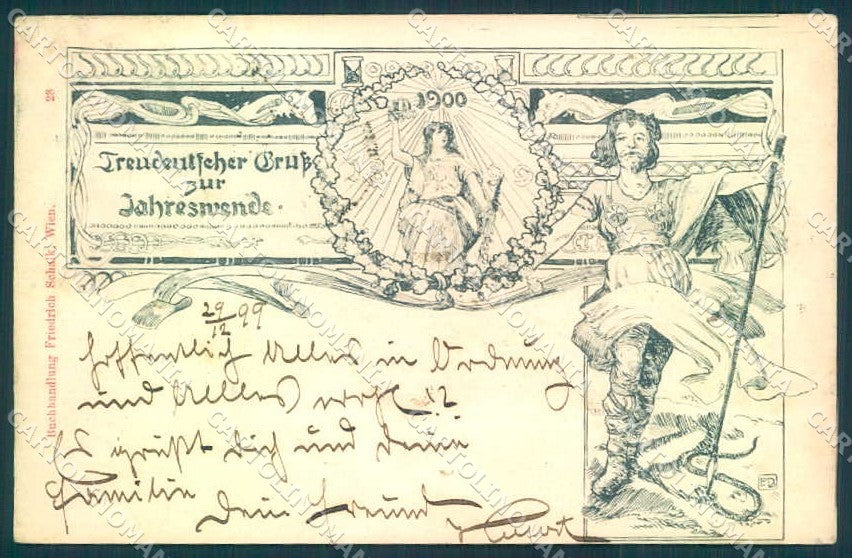 1900
Treudeutscher Gruß
zur
Jahreswende.
29/12 99
Hoffentlich Alles in Ordnung
und Alles wohl !?
Es grüßt Dich und Deine
Familie
Dein Freund
Buchhandlung Friedrich Schalk, Wien.
28
CARTOLINOMANIA